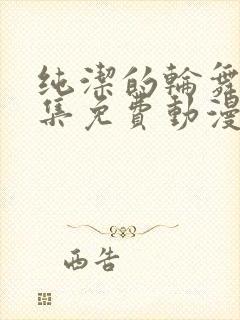 纯潔的輪舞
集免費動漫
西告